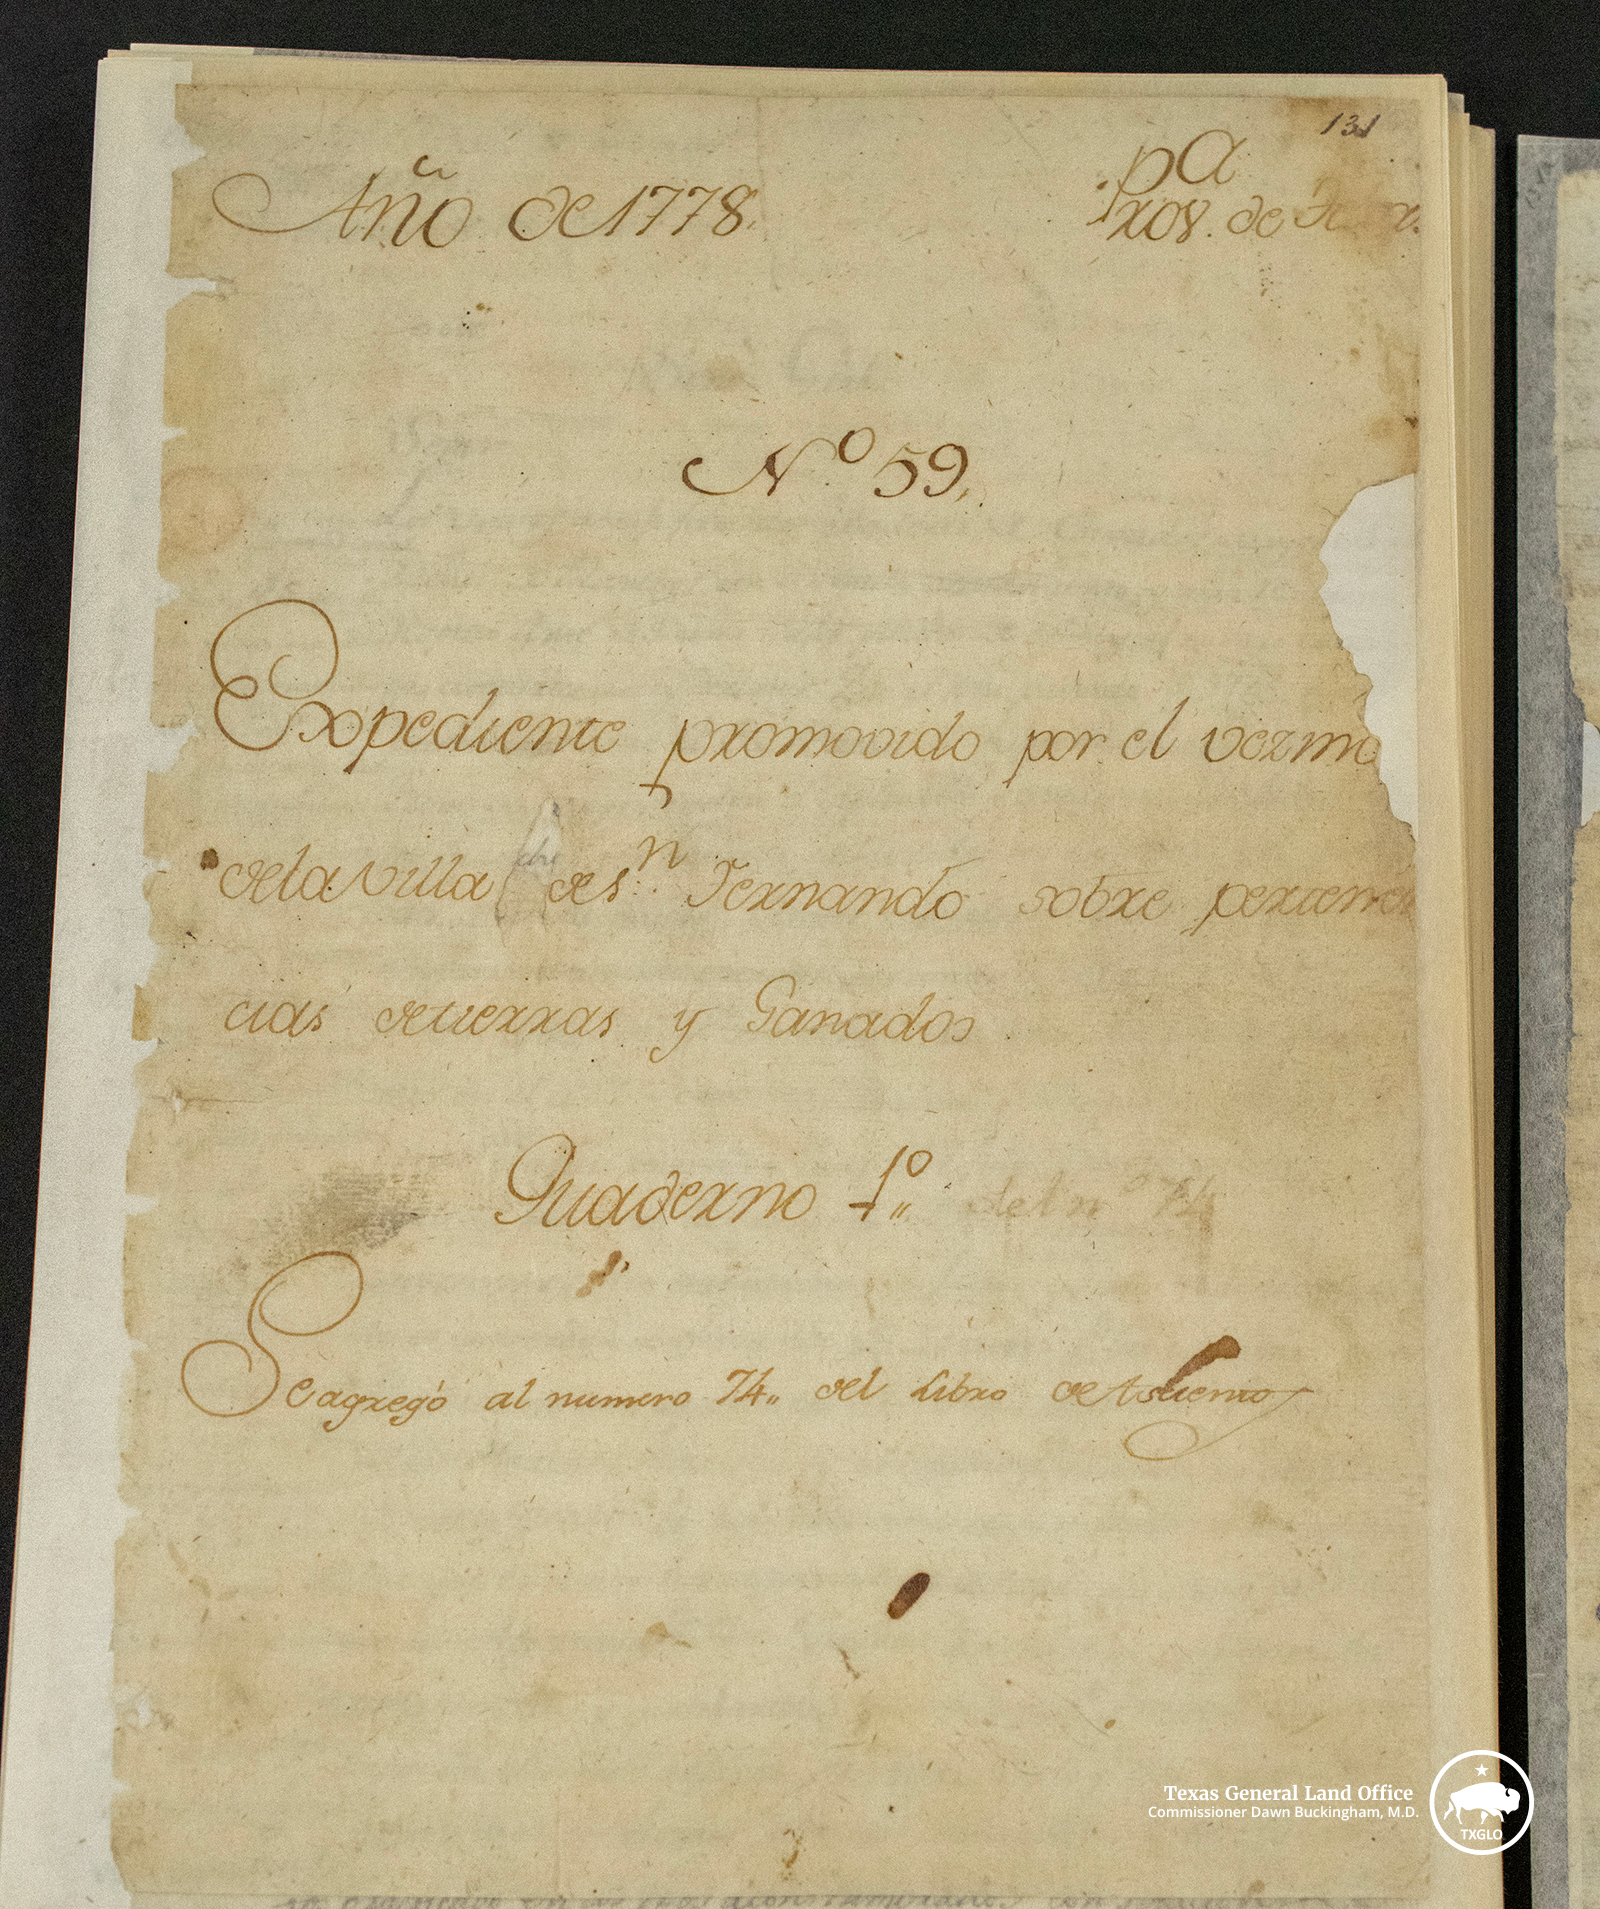 131
Año de 1778.
pa
Prov. de
No. 59.
Expediente promovido por el vezino
dela Villa de Sn. Fernando sobre pertenen
cias detierras y Ganados.
Quaderno 1o.. del no 74
Se agregó al numero 74.. del Libro de Asiento
Texas General Land Office
Commissioner Dawn Buckingham, M.D.
TXGLO